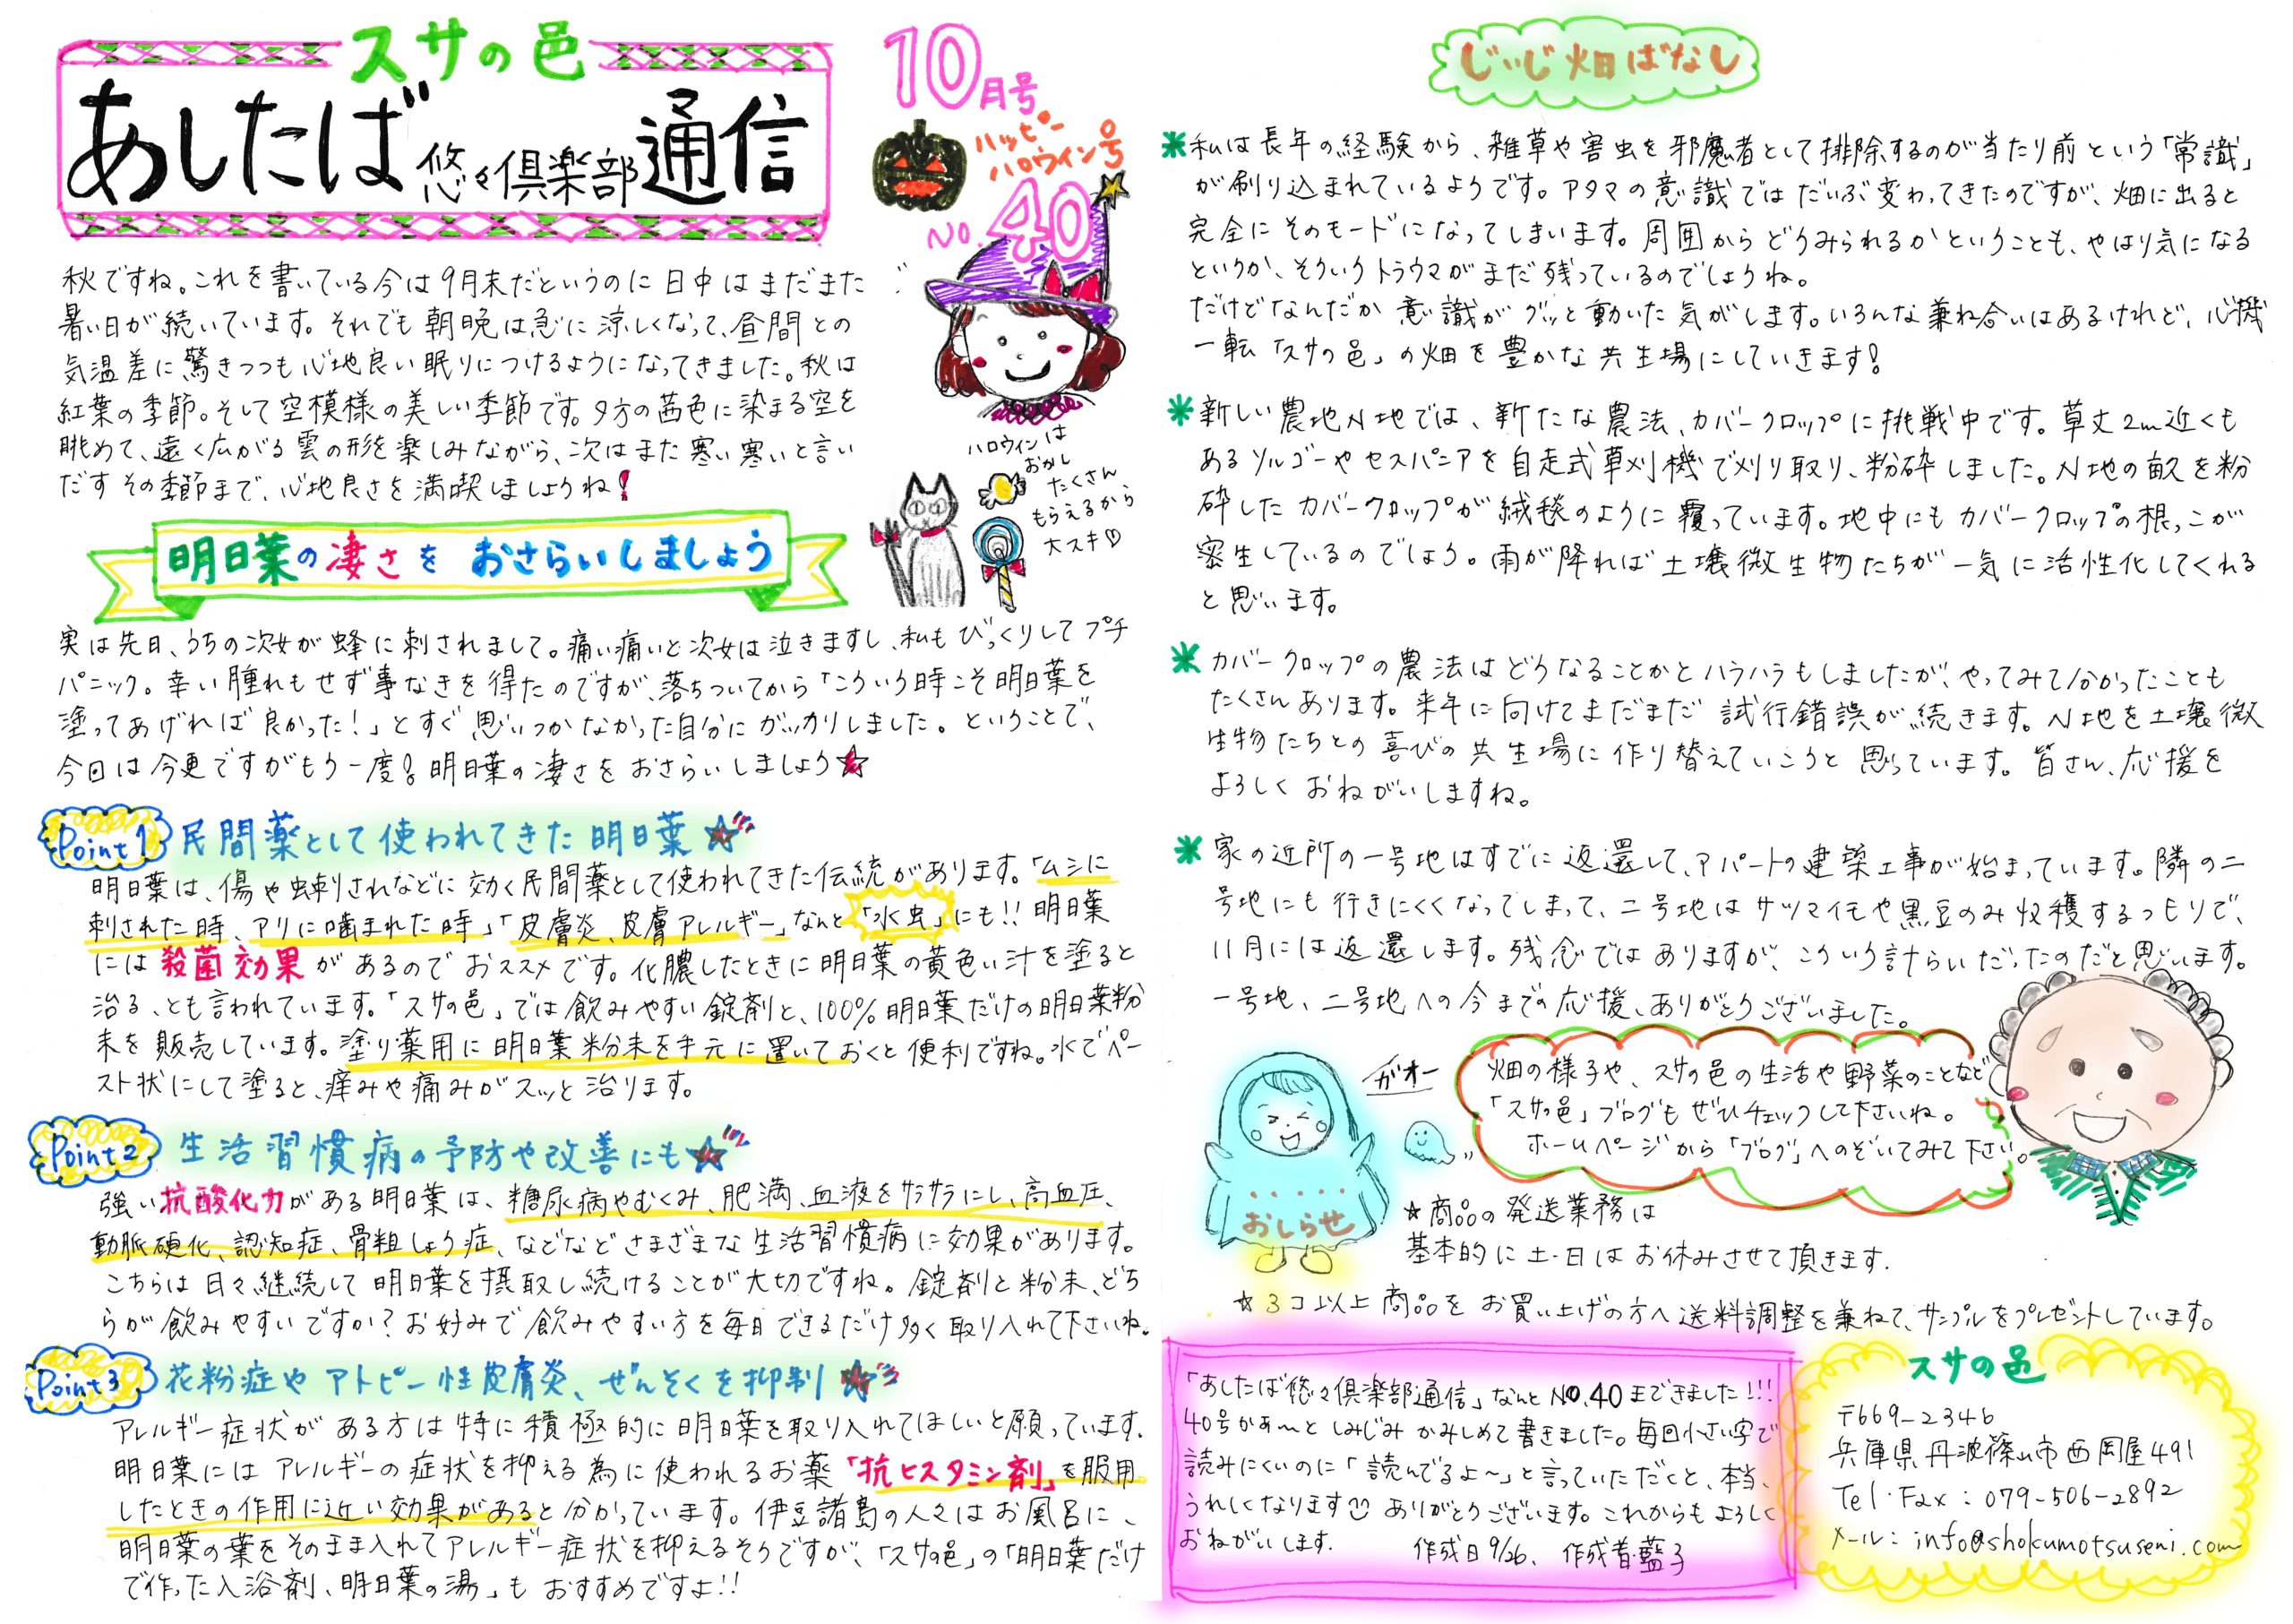 スサの邑
あしたば悠々倶楽部通信
10月号
ハッピー
ハロウィン号
No.40
秋ですね。これを書いている今は9月末だというのに日中はまだまた
暑い日が続いています。それでも朝晩は急に涼しくなって、昼間との
気温差に驚きつつも心地良い眠りにつけるようになってきました。秋は
紅葉の季節。そして空模様の美しい季節です。夕方の茜色に染まる空を
眺めて、遠く広がる雲の形を楽しみながら、次はまた寒い寒いと言い
だすその季節まで、心地良さを満喫しましょうね!
ハロウィンは
おかし
たくさん
もらえるから
大スキ♡
明日葉の凄さをおさらいしましょう
実は先日、うちの次女が蜂に刺されまして。痛い痛いと次女は泣きますし、私もびっくりしてプチ
パニック。幸い腫れもせず事なきを得たのですが、落ちついてから「こういう時こそ明日葉を
塗ってあげれば良かった!」とすぐ思いつかなかった自分にガッカリしました。ということで、
今日は今更ですがもう一度!明日葉の凄さをおさらいしましょう☆
Point1 民間薬として使われてきた明日葉☆
明日葉は、傷や虫刺されなどに効く民間薬として使われてきた伝統があります。「ムシに
刺された時、アリに噛まれた時」「皮膚炎、皮膚アレルギー」なんと「水虫」にも!!明日葉
には殺菌効果があるのでおススメです。化膿したときに明日葉の黄色い汁を塗ると
治る、とも言われています。「スサの邑」では飲みやすい錠剤と、100%明日葉だけの明日葉粉
末を販売しています。塗り薬用に明日葉粉末を手元に置いておくと便利ですね。水でペー
スト状にして塗ると、痒みや痛みがスッと治ります。
Point2 生活習慣病の予防や改善にも☆
強い抗酸化力がある明日葉は、糖尿病やむくみ、肥満、血液をサラサラにし、高血圧、
動脈硬化、認知症、骨粗しょう症、などなどさまざまな生活習慣病に効果があります。
こちらは日々継続して明日葉を摂取し続けることが大切ですね。錠剤と粉末、どち
らが飲みやすいですか?お好みで飲みやすい方を毎日できるだけ多く取り入れて下さいね。
Point3 花粉症やアトピー性皮膚炎、ぜんそくを抑制☆
アレルギー症状がある方は特に積極的に明日葉を取り入れてほしいと願っています。
明日葉にはアレルギーの症状を抑える為に使われるお薬「抗ヒスタミン剤」を服用
したときの作用に近い効果があると分かっています。伊豆諸島の人々はお風呂に、
明日葉の葉をそのまま入れてアレルギー症状を抑えるそうですが、「スサの邑」の「明日葉だけ
で作った入浴剤、明日葉の湯」もおすすめですよ!!
じいじ畑ばなし
＊私は長年の経験から、雑草や害虫を邪魔者として排除するのが当たり前という「常識」
が刷り込まれているようです。アタマの意識ではだいぶ変わってきたのですが、畑に出ると
完全にそのモードになってしまいます。周囲からどうみられるかということも、やはり気になる
というか、そういうトラウマがまだ残っているのでしょうね。
だけどなんだか意識がグッと動いた気がします。いろんな兼ね合いはあるけれど、心機
一転「スサの邑」の畑を豊かな共生場にしていきます!
＊新しい農地N地では、新たな農法、カバークロップに挑戦中です。草丈2m近くも
あるソルゴーやセスバニアを自走式草刈機で刈り取り、粉砕しました。N地の畝を粉
砕したカバークロップが絨毯のように覆っています。地中にもカバークロップの根っこが
密生しているのでしょう。雨が降れば土壌微生物たちが一気に活性化してくれる
と思います。
＊カバークロップの農法はどうなることかとハラハラもしましたが、やってみて分かったことも
たくさんあります。来年に向けてまだまだ試行錯誤が続きます。N地を土壌微
生物たちとの喜びの共生場に作り替えていこうと思っています。皆さん、応援を
よろしくおねがいしますね。
＊家の近所の一号地はすでに返還して、アパートの建築工事が始まっています。隣の二
号地にも行きにくくなってしまって、二号地はサツマイモや黒豆のみ収穫するつもりで、
11月には返還します。残念ではありますが、こういう計らいだったのだと思います。
一号地、二号地への今までの応援、ありがとうございました。
ガオー
畑の様子や、スサの邑の生活や野菜のことなど
「スサの邑」ブログもぜひチェックして下さいね。
ホームページから「ブログ」へのぞいてみて下さい。
おしらせ
☆商品の発送業務は
基本的に土・日はお休みさせて頂きます.
☆3コ以上商品をお買い上げの方へ送料調整を兼ねて、サンプルをプレゼントしています。
「あしたば悠々倶楽部通信」なんとNO.40まできました!!!
40号かぁ〜としみじみかみしめて書きました。毎回小さい字で
読みにくいのに「読んでるよ〜」と言っていただくと、本当、
うれしくなります☺ありがとうございます。これからもよろしく
おねがいします。 作成日9/26、作成者・藍子
スサの邑
〒669-2346
兵庫県丹波篠山市西岡屋491
Tel・Fax:079-506-2892
メール:info@shokumotsuseni.com